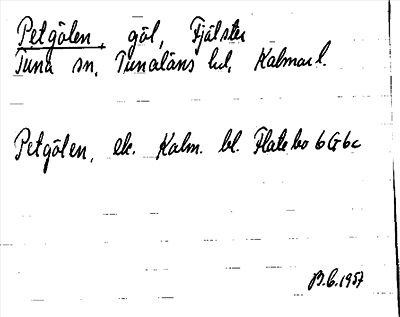 Petgölen, göl, Fjälster
Tuna sn, Tunaläns hd, Kalmar l.
Petgölen, ek. Kalm. bl. Flatebo 6G6c
B.C. 1957